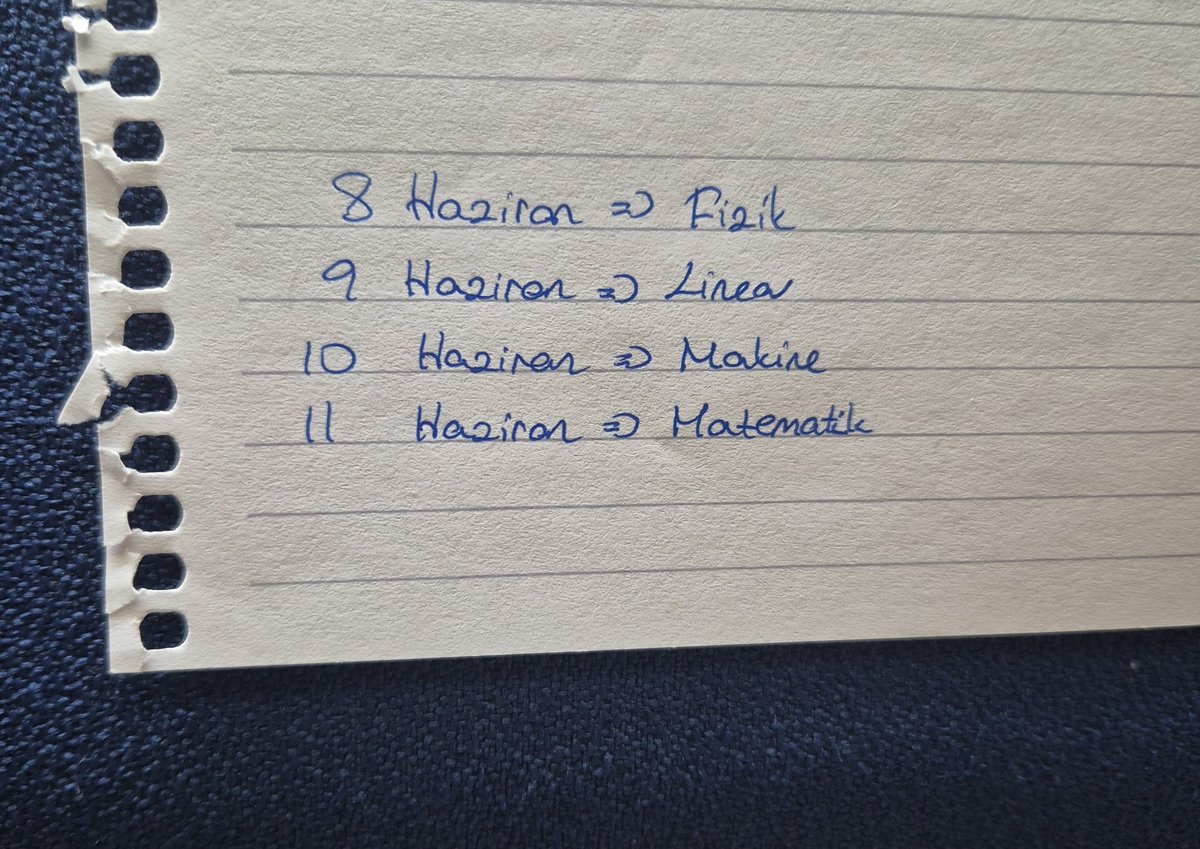 8 Haziran => Fizik
9 Haziran => Linear
10 Haziran => Makine
11 Haziran => Matematik